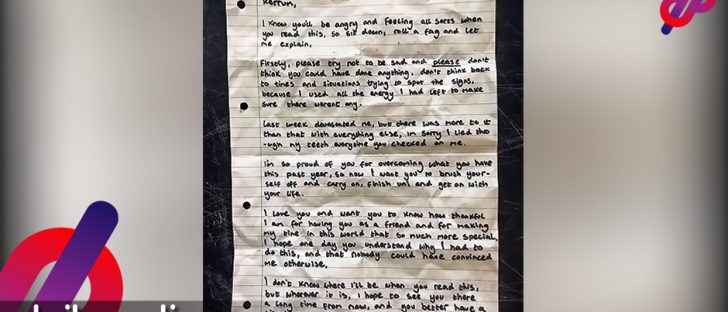 Kerrum,
I know you'll be angry and feeling all sorts when
you read this, so sit down, roll a fag and let
me explain,
Firstly, please try not to be sad and please don't
think you could have done anything, don't think back
to times and situations trying to spot the signs,
because I used all the energy I had left to make
sure there werent any.
Last week devastated me, but there was more to it
than that with everything else, im sorry I lied thro
-ugh my teeth everytime you checked on me.
Im so proud of you for overcoming what you have
this past year, so now I want you to brush your-
self off and carry on, finish uni and get on with
your life.
I love you and want you to know how thankful
I am for having you as a friend and for making
my time in this world that so much more special,
I hope one day you understand why I had to
do this, and that nobody could have convinced
me otherwise,
I don't know where I'll be when you read this,
but wherever it is, I hope to see you there
a long time from now, and you better have a